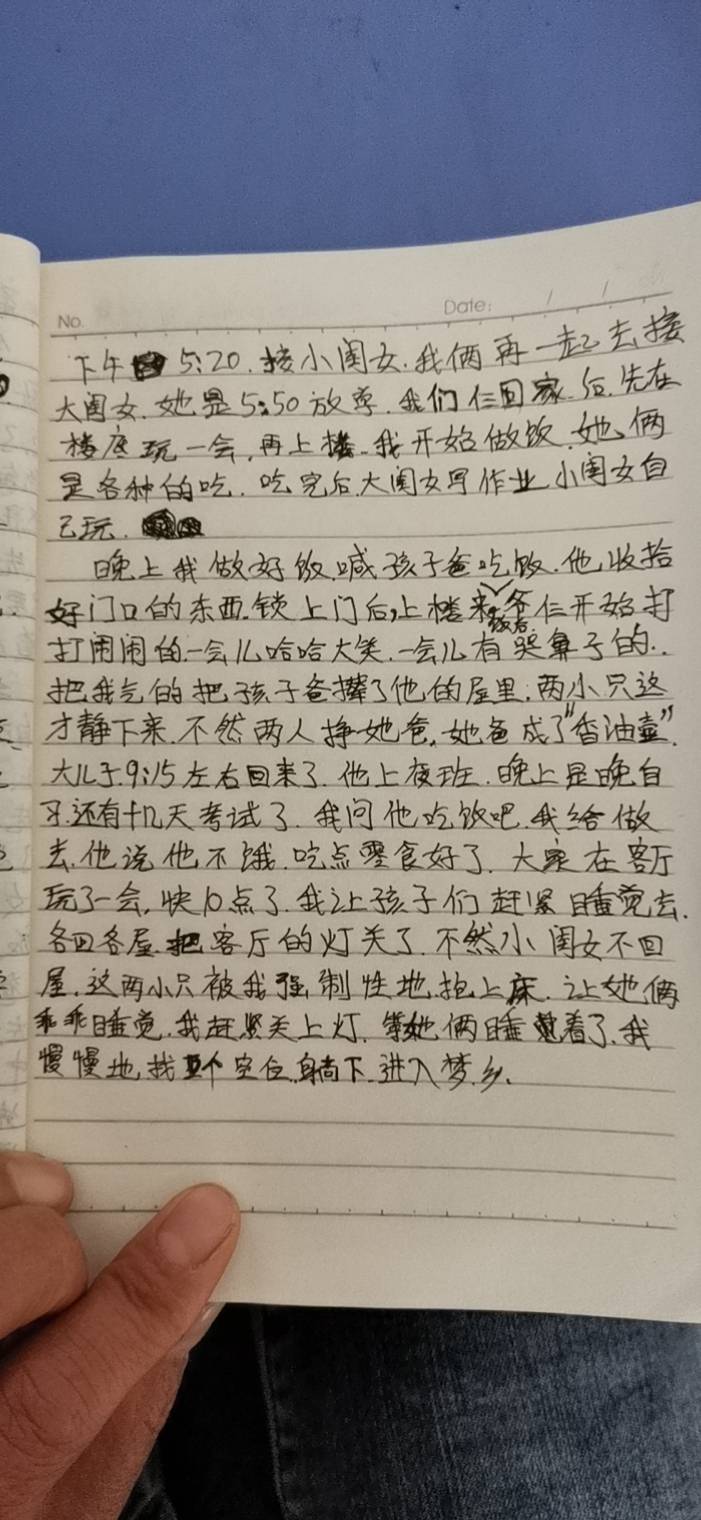 No.
Date: / /
下午 5:20.接小闺女.我俩再一起去接
大闺女.她是5:50放学.我们仨回家后.先在
楼底玩一会,再上楼.我开始做饭.她俩
是各种的吃.吃完后.大闺女写作业小闺女自
己玩.
晚上我做好饭,喊孩子爸吃饭.他收拾
好门口的东西.锁上门后,上楼来爷仨开始打
饭后
打闹闹的.一会儿哈哈大笑.一会儿有哭鼻子的..
把我气的把孩子爸撵了他的屋里.两小只这
才静下来.不然两人挣她爸,她爸成了"香油壶".
大儿子.9:15左右回来了.他上夜班.晚上是晚自
习.还有十几天考试了.我问他吃饭吧.我给做
去.他说他不饿.吃点零食好了.大家在客厅
玩了一会,快10点了.我让孩子们赶紧睡觉去.
各回各屋.把客厅的灯关了.不然小闺女不回
屋.这两小只被我强制性地抱上床.让她俩
乖乖睡觉.我赶紧关上灯.等她俩睡着了.我
慢慢地找个空位.躺下.进入梦乡.